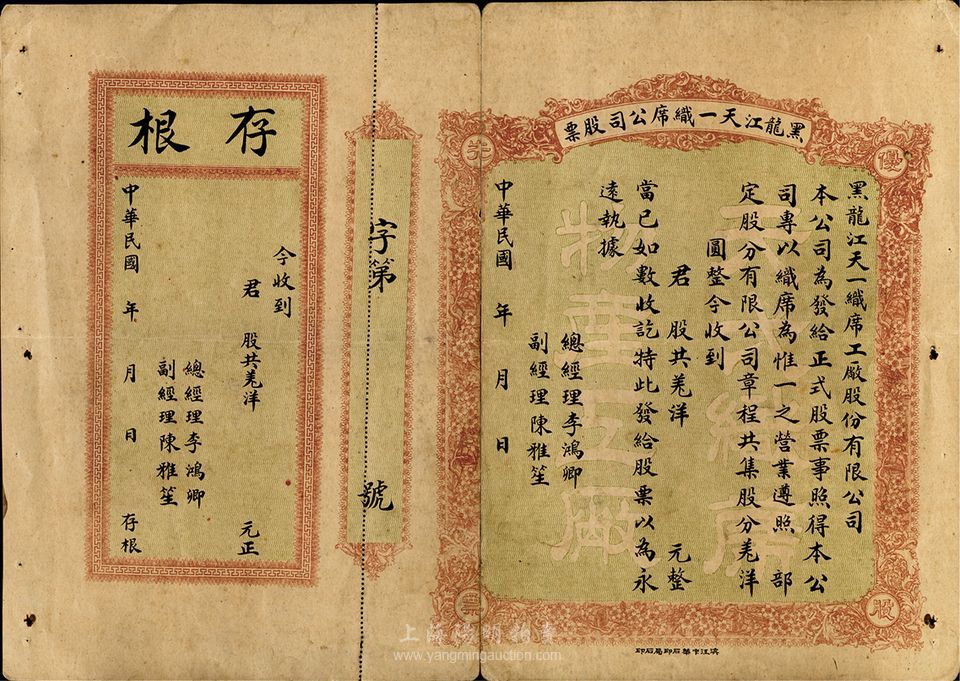 黑龍江天一織席公司股票
優先
股票
黑龍江天一織席工廠股份有限公司
本公司為發給正式股票事照得本公
司專以織席為惟一之營業遵照 部
定股分有限公司章程共集股分羌洋
圓整今收到
君 股共羌洋 元整
當已如數收訖特此發給股票以為永
遠執據
總經理李鴻卿
副經理陳雅笙
中華民國 年 月 日
物產工廠
字第 號
存根
今收到
君 股共羌洋 元正
總經理李鴻卿
副經理陳雅笙
中華民國 年 月 日 存根
上海阳明拍卖
www.yangmingauction.com